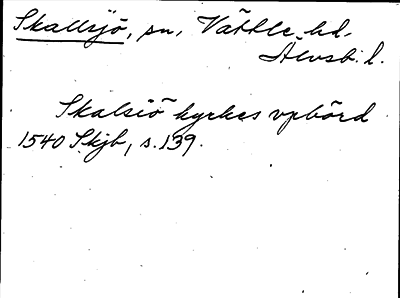 Skallsjö, sn, Vättle hd,
Älvsb. l.
Skalsiö kyrkes vpbörd
1540 Skjb, s. 139.